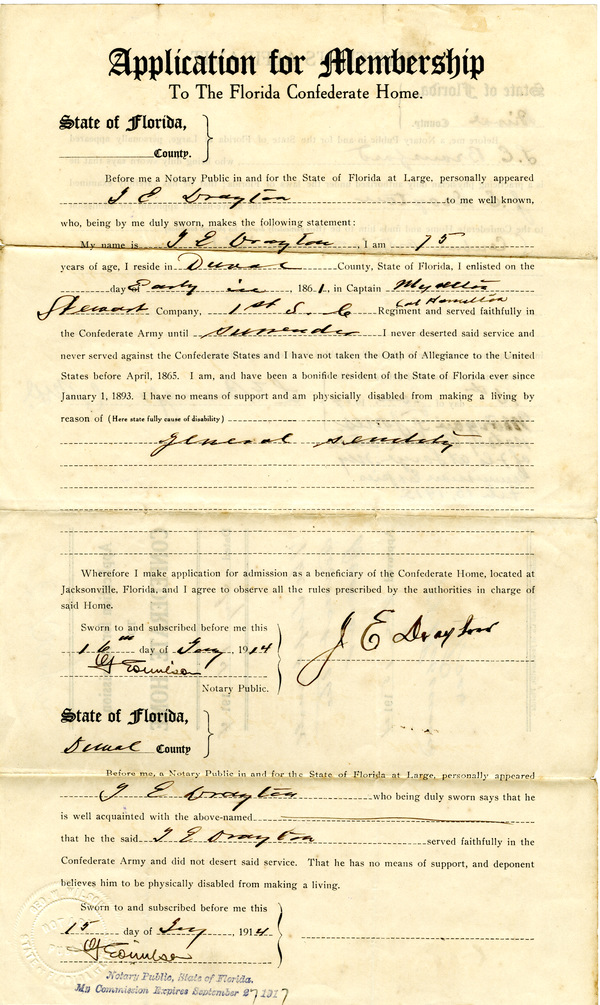 Application for Membership
To The Florida Confederate Home.
State of Florida,
County.
Before me a Notary Public in and for the State of Florida at Large, personally appeared
J E Drayton to me well known,
who, being by me duly sworn, makes the following statement:
My name is J E Drayton, I am 75
years of age, I reside in Duval County, State of Florida, I enlisted on the
day of Early in, 1861, in Captain
Col Hamilton
Stewart Company, 1st S. C Regiment and served faithfully in
the Confederate Army until surrender I never deserted said service and
never served against the Confederate States and I have not taken the Oath of Allegiance to the United
States before April, 1865. I am, and have been a bonifide resident of the State of Florida ever since
January 1, 1893. I have no means of support and am physicially disabled from making a living by
reason of (Here state fully cause of disability)
general senility
Wherefore I make application for admission as a beneficiary of the Confederate Home, located at
Jacksonville, Florida, and I agree to observe all the rules prescribed by the authorities in charge of
said Home.
Sworn to and subscribed before me this
16 day of Jany, 1914
J E Drayton
Notary Public.
State of Florida,
Duval County
Before me, a Notary Public in and for the State of Florida at Large, personally appeared
J E Drayton who being duly sworn says that he
is well acquainted with the above-named
that he the said J E Drayton served faithfully in the
Confederate Army and did not desert said service. That he has no means of support, and deponent
believes him to be physically disabled from making a living.
Sworn to and subscribed before me this
15 day of Jny, 1914
Notary Public, State of Florida.
My Commission Expires September 27 1917